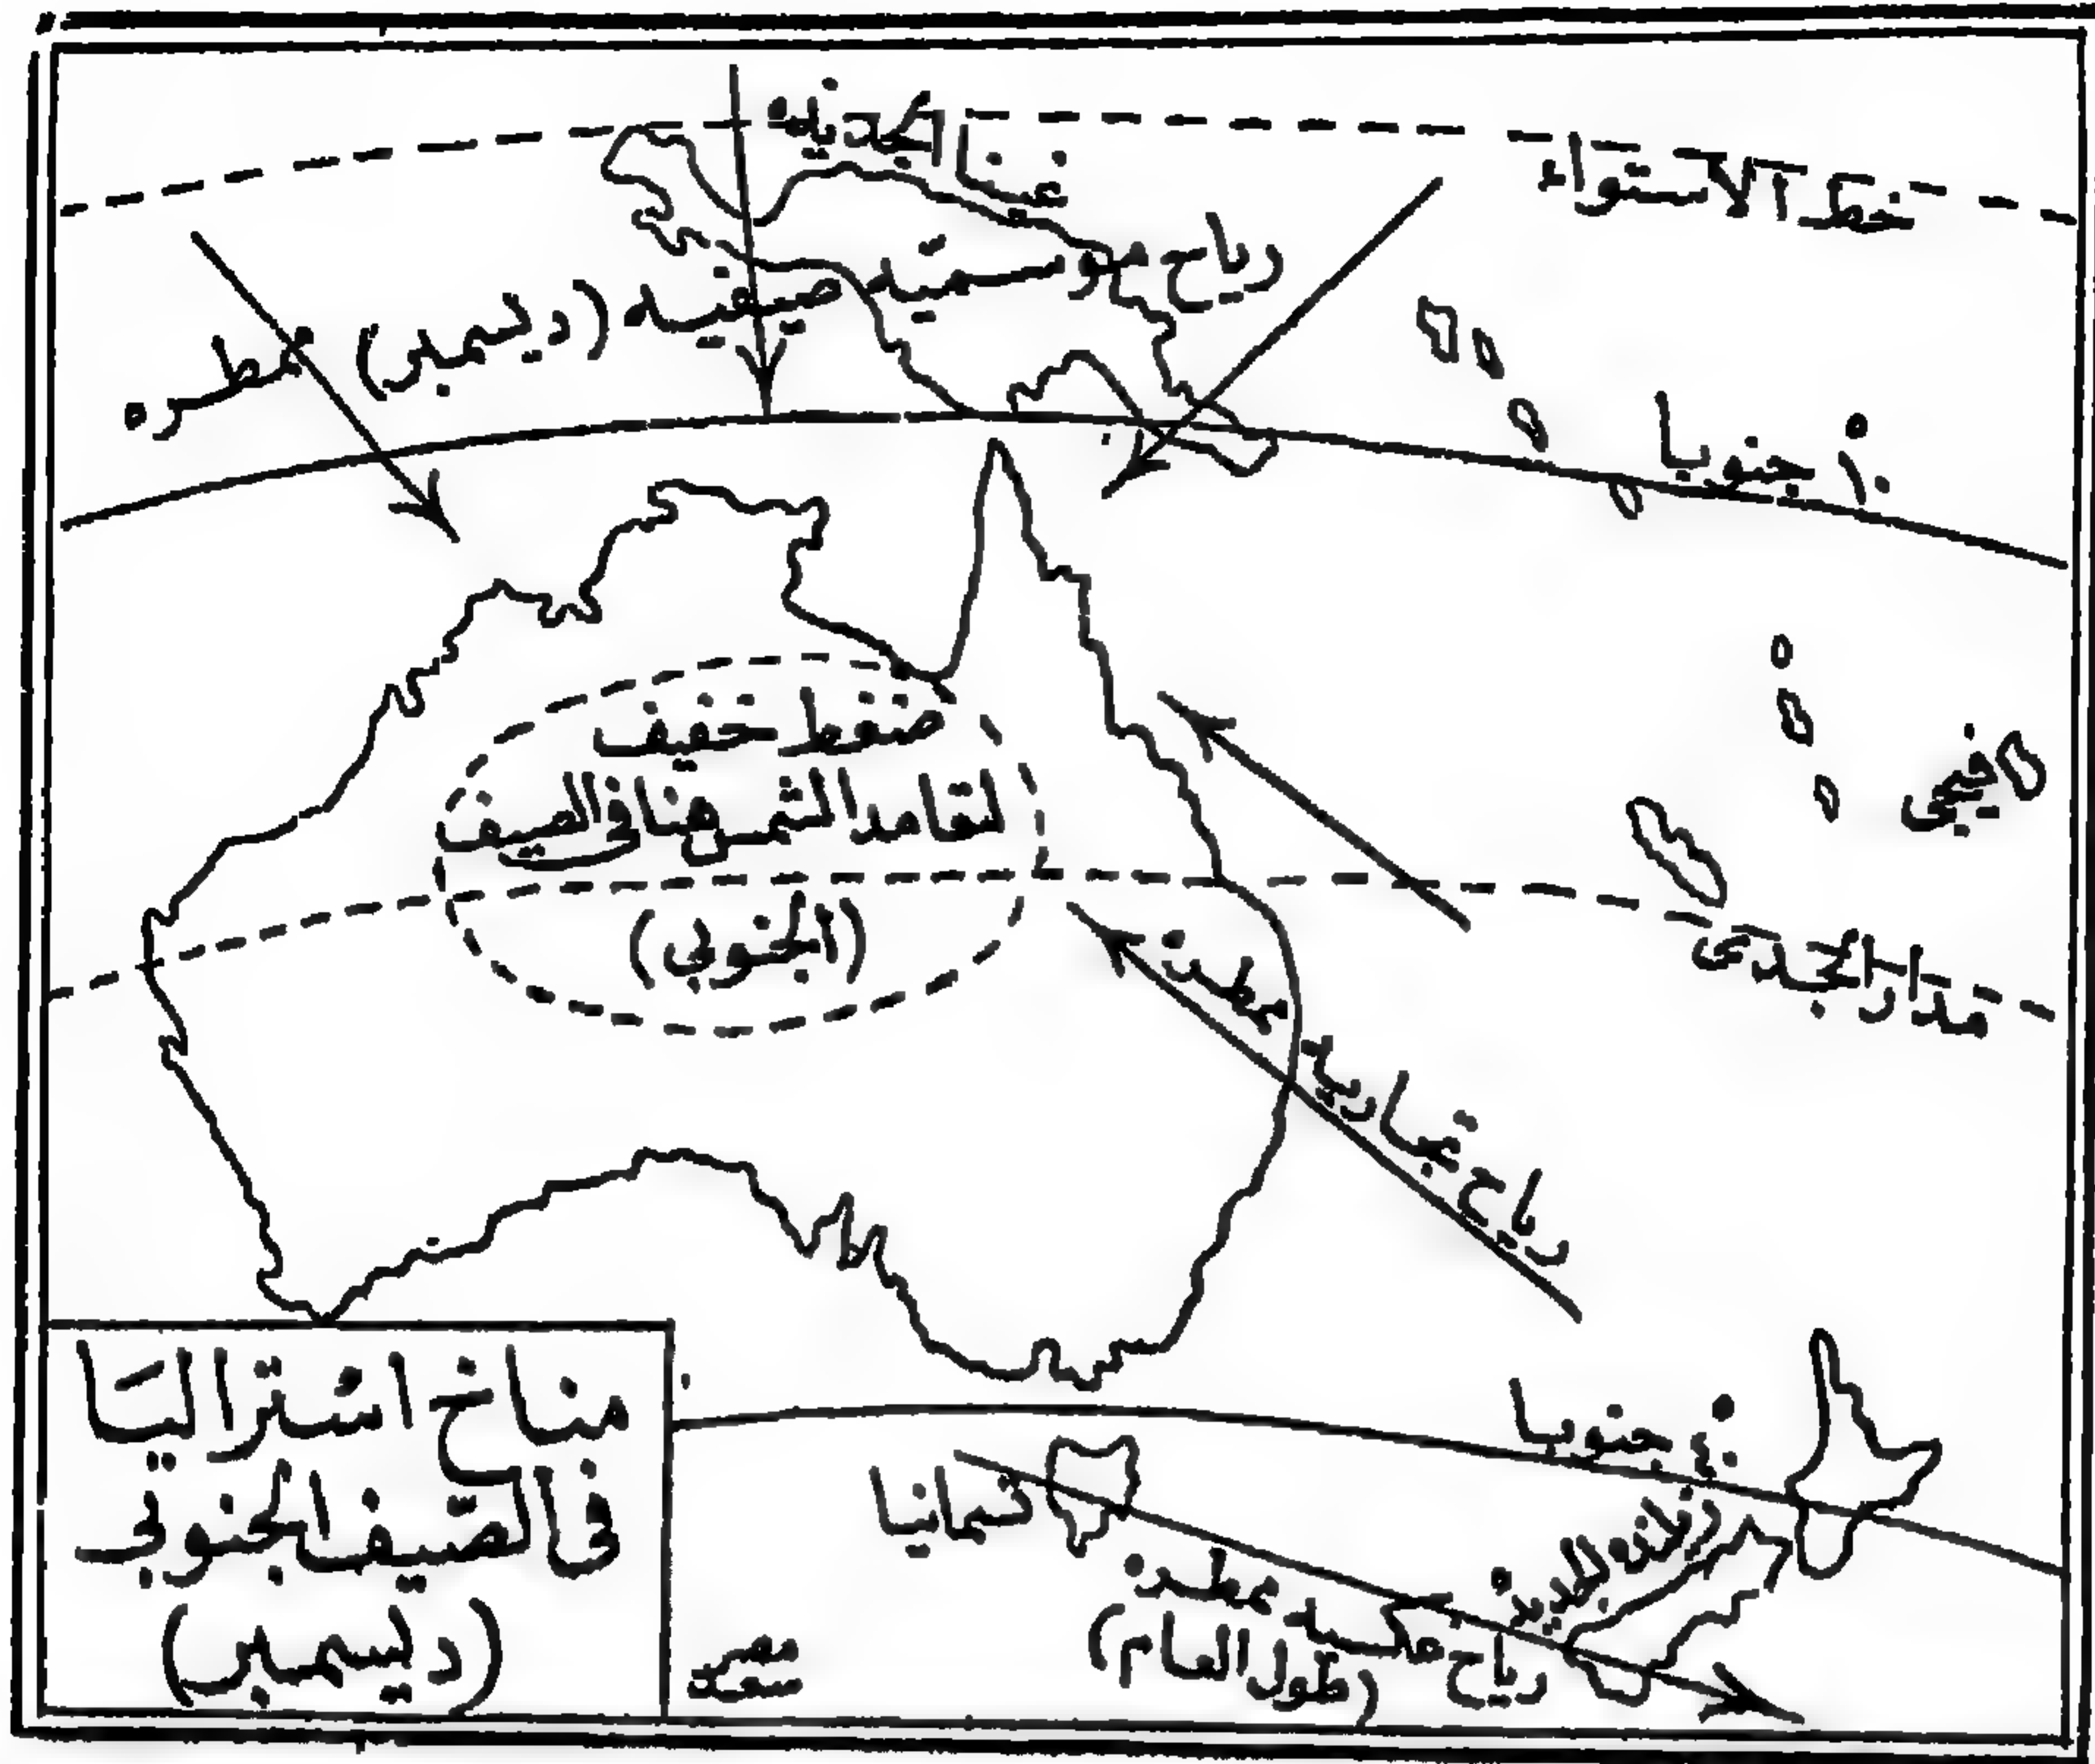 غنيا الجديده
خط الاستواء
رياح موسميه صيفيه (ديسمبر) ممطره
١٠ْ جنوبا
ضغط خفيف
لتعامد الشمس هنا في الصيف
(الجنوبي)
فيجى
مدار الجدى
رياح تجاريه ممطره
٤٠ْ جنوبا
تسمانيا
زيلنده الجديده
رياح عكسيه ممطره
(طول العام)
مناخ استراليا
في الصيف الجنوبي
(ديسمبر)